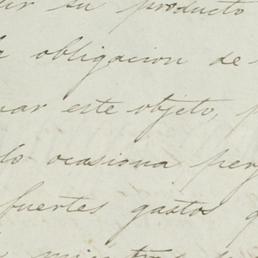 su producto
obligacion de
este objeto,
ocasiona
fuertes gastos